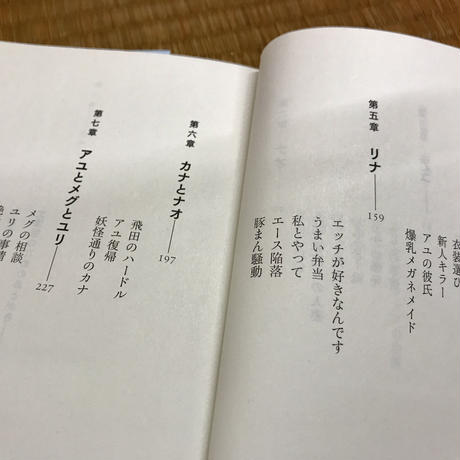 衣装選び
新人キラー
アユの彼氏
爆乳メガネメイド
第五章 リナ 159
エッチが好きなんです
うまい弁当
私とやって
エース陥落
豚まん騒動
第六章 カナとナオ 197
飛田のハードル
アユ復帰
妖怪通りのカナ
第七章 アユとメグとユリ 227
メグの相談
ユリの事情